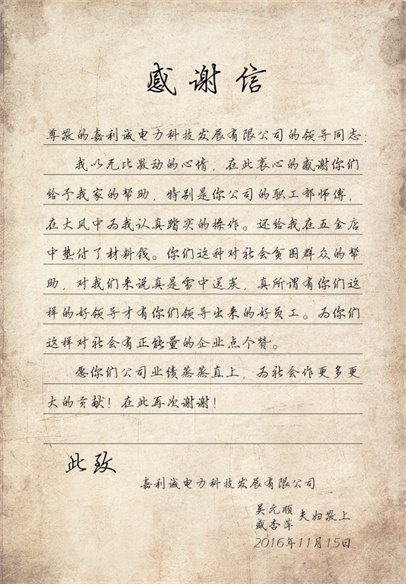 感谢信
尊敬的嘉利诚电力科技发展有限公司的领导同志:
我以无比激动的心情,在此衷心的感谢你们
给予我家的帮助,特别是你公司的职工郁师傅,
在大风中为我认真踏实的操作。还给我在五金店
中垫付了材料钱。你们这种对社会贫困群众的帮
助,对我们来说真是雪中送炭,真所谓有你们这
样的好领导才有你们领导出来的好员工。为你们
这样对社会有正能量的企业点个赞。
愿你们公司业绩蒸蒸直上,为社会作更多更
大的贡献!在此再次谢谢!
此致
嘉利诚电力科技发展有限公司
吴元顺
盛杏萍 夫妇敬上
2016年11月15日